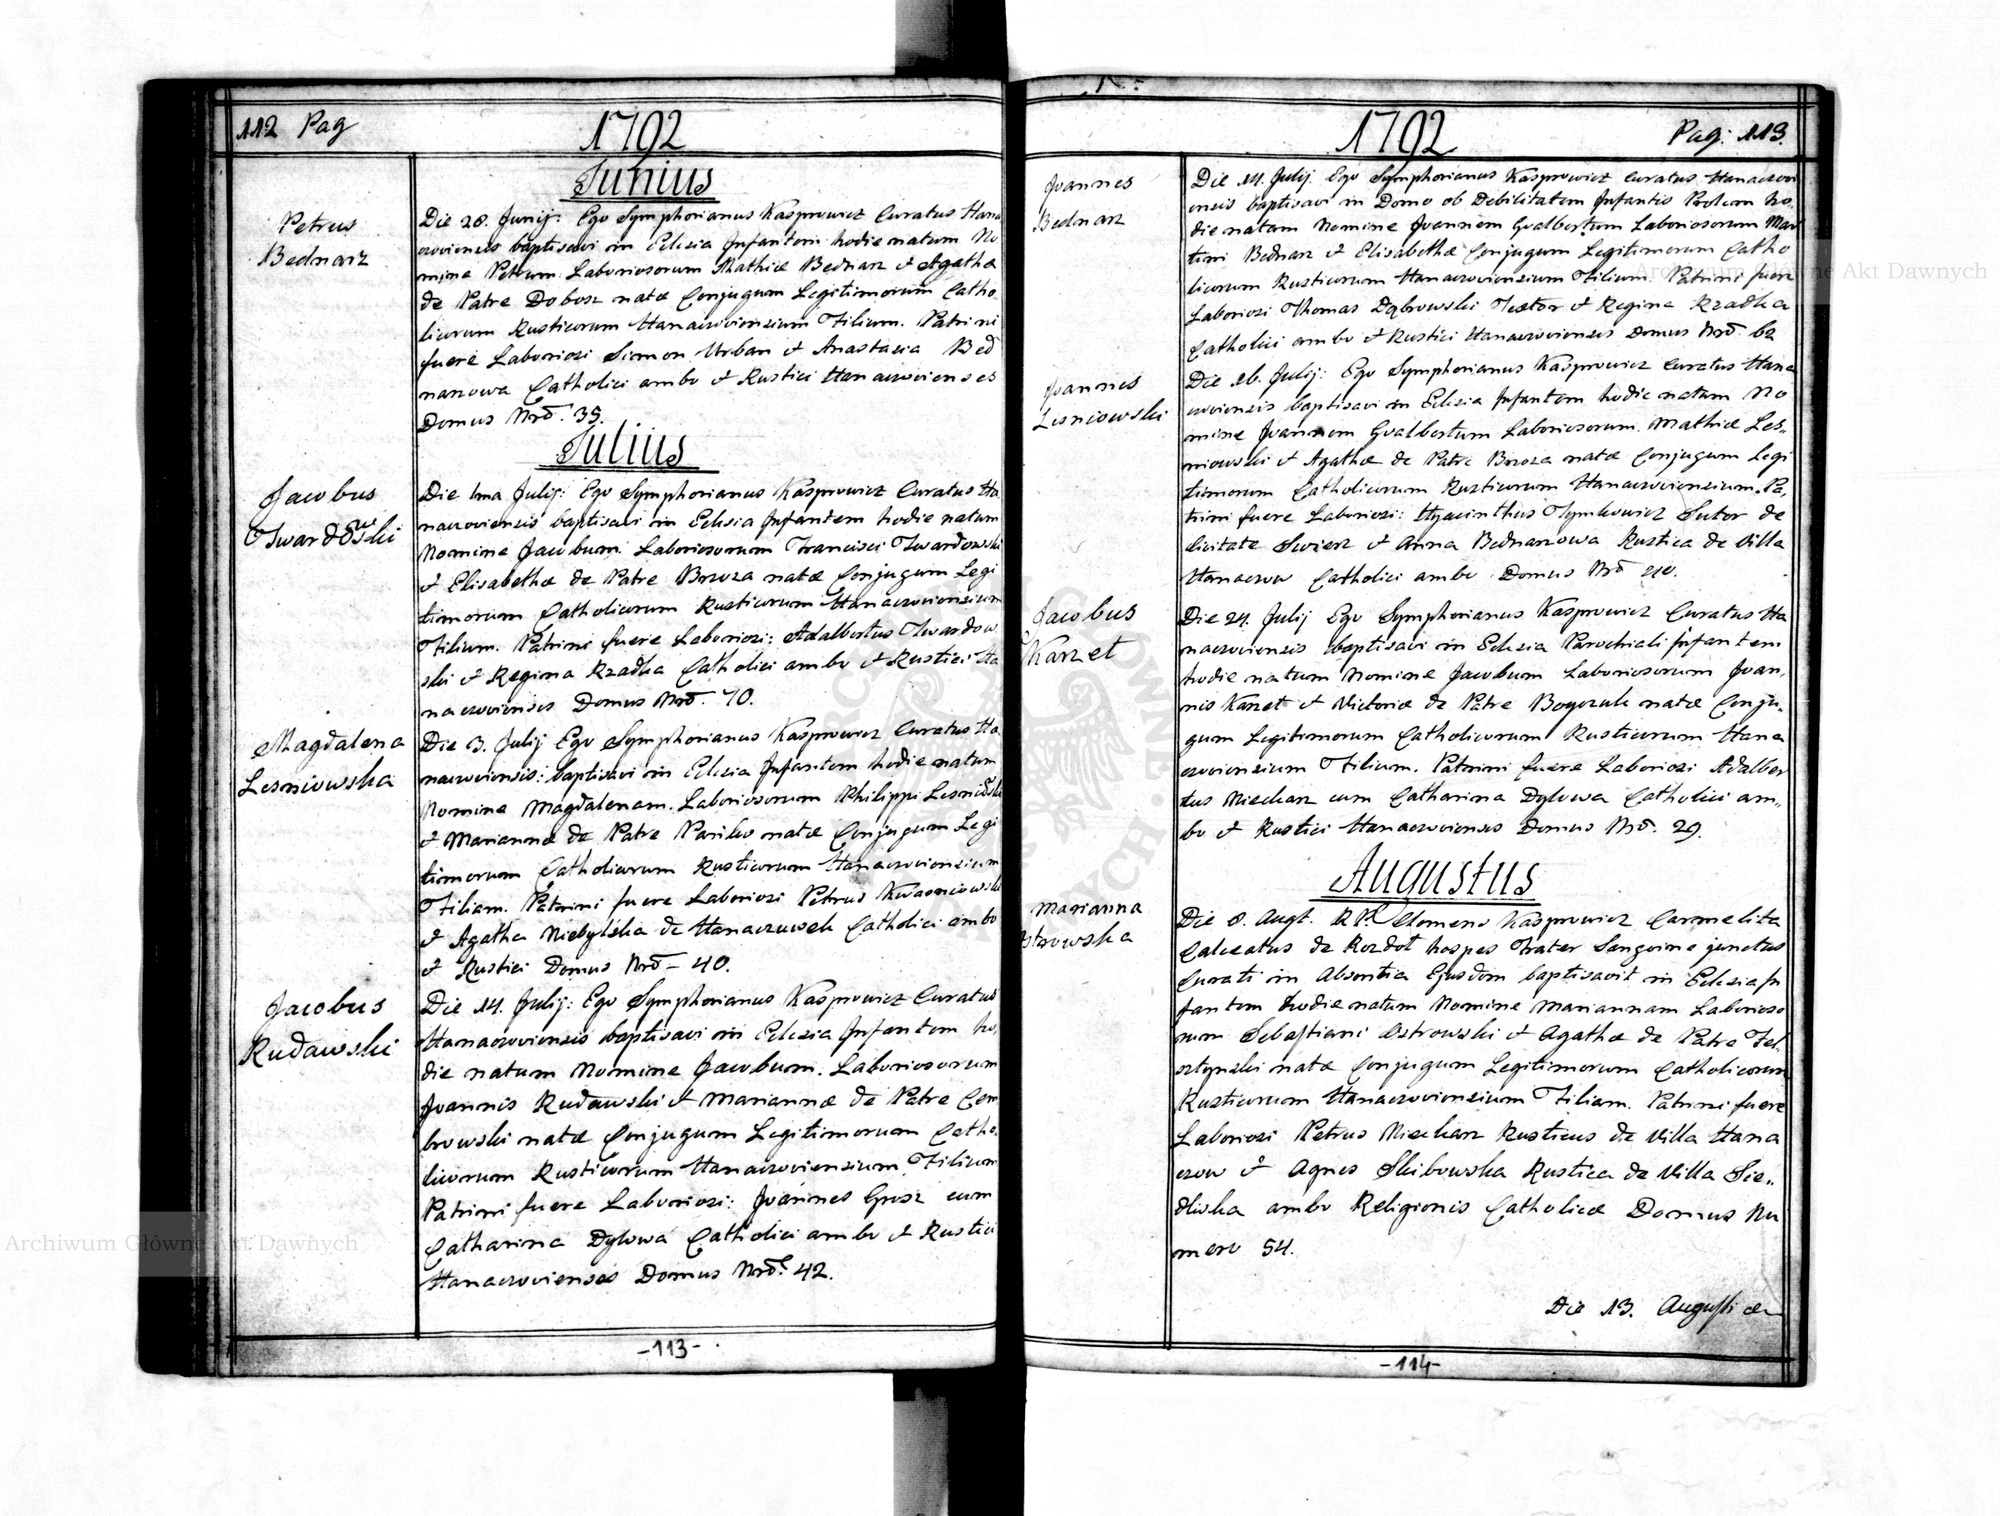 112 Pag
1792
Junius
Petrus
Bednarz
Die 28. Junij: Ego Symphorianus Kasprowicz Curatus Hana
czoviensis baptisavi in Eclesia Infantem hodie natum No
mine Petrum. Laboriosorum Mathiæ Bednarz & Agathæ
de Patre Dobosz natæ Conjugum Legitimorum Catho
licorum Rusticorum Hanaczoviensium Filium. Patrini
fuere Laboriosi Simon Urban & Anastasia Bed
narzowa Catholici ambo & Rustici Hanaczovienses
Domus Nrō. 35.
Julius
Jacobus
Twardowski
Die 1ma Julij: Ego Symphorianus Kasprowicz Curatus Ha
naczoviensis baptisavi in Eclesia Infantem hodie natum
Nomine Jacobum. Laboriosorum Francisci Twardowski
& Elisabethæ de Patre Brzoza natæ Conjugum Legi
timorum Catholicorum Rusticorum Hanaczoviensium
Filium. Patrini fuere Laboriosi: Adalbertus Twardow
ski & Regina Rzadka Catholici ambo & Rustici Ha
naczovienses Domus Nrō. 70.
Magdalena
Lesniowska
Die 3. Julij Ego Symphorianus Kasprowicz Curatus Ha
naczoviensis: baptisavi in Eclesia Infantem hodie natum
Nomine Magdalenam. Laboriosorum Philippi Lesniowski
& Mariannæ de Patre Pariko natæ Conjugum Legi
timorum Catholicorum Rusticorum Hanaczoviensium
Filiam. Patrini fuere Laboriosi Petrus Kwasniowski
& Agatha Niebylska de Hanaczuwek Catholici ambo
& Rustici Domus Nrō - 40.
Jacobus
Rudawski
Die 14. Julij: Ego Symphorianus Kasprowicz Curatus
Hanaczoviensis baptisavi in Eclesia Infantem ho,
die natum Nomine Jacobum. Laboriosorum
Joannis Rudawski & Mariannæ de Patre Cem
browski natæ Conjugum Legitimorum Catho.
licorum Rusticorum Hanaczoviensium Filium
Patrini fuere Laboriosi: Joannes Grosz cum
Catharina Dylowa Catholici ambo & Rustici
Hanaczovienses Domus Nrō. 42.
-113-
1792
Pag: 113.
Joannes
Bednarz
Die 14. Julij. Ego Symphorianus Kasprowicz Curatus Hanaczovi
ensis baptisavi in Domo ob Debilitatem Infantis Prolem ho,
die natam Nomine Joannem Gvalbertum Laboriosorum Mar
tini Bednarz & Elisabethæ Conjugum Legitimorum Catho
licorum Rusticorum Hanaczoviensium Filium. Patrini fuere
Laboriosi Thomas Dąbrowski Textor & Regina Rzadka
Catholici ambo & Rustici Hanaczovienses Domus Nrō. 62
Joannes
Lesniowski
Die 16. Julij: Ego Symphorianus Kasprowicz Curatus Hana
czoviensis baptisavi in Eclesia Infantem hodie natum No
mine Joannem Gvalbertum Laboriosorum. Mathiæ Les,,
niowski & Agathæ de Patre Brzoza natæ Conjugum Legi
timorum Catholicorum Rusticorum Hanaczoviensium. Pa,
trini fuere Laboriosi: Hyacinthus Tymkowicz Sutor de
Civitate Swierz & Anna Bednarzowa Rustica de Villa
Hanaczow Catholici ambo Domus Nrō 210.
Jacobus
Karzet
Die 24. Julij Ego Symphorianus Kasprowicz Curatus Ha
naczoviensis baptisavi in Eclesia Parochiali Infantem
hodie natum Nomine Jacobum Laboriosorum Joan,
nis Karzet & Victoriæ de Patre Bogoczuk natæ Conju,,
gum Legitimorum Catholicorum Rusticorum Hana
czoviensium Filium. Patrini fuere Laboriosi Adalber
tus Miekarz cum Catharina Dylowa Catholici am,,
bo & Rustici Hanaczovienses Domus Nrō. 29.
Augustus
Marianna
Ostrowska
Die 8. Augt. RP. Clemens Kasprowicz Carmelita
Calceatus de Rozdot hospes Frater Sanguine junctus
Curati in Absentia Ejusdem baptisavit in Eclesia In
fantem hodie natum Nomine Mariannam Laborioso
rum Sebastiani Ostrowski & Agathæ de Patre Fel,
sztynski natæ Conjugum Legitimorum Catholicorum
Rusticorum Hanaczoviensium Filiam. Patrini fuere
Laboriosi Petrus Miekarz Rusticus de Villa Hana
czow & Agnes Skibowska Rustica de Villa Sie,,
dliska ambo Religionis Catholicæ Domus Nu
mero 54.
Die 13. Augusti
-114-
Archiwum Główne Akt Dawnych
Archiwum Główne Akt Dawnych